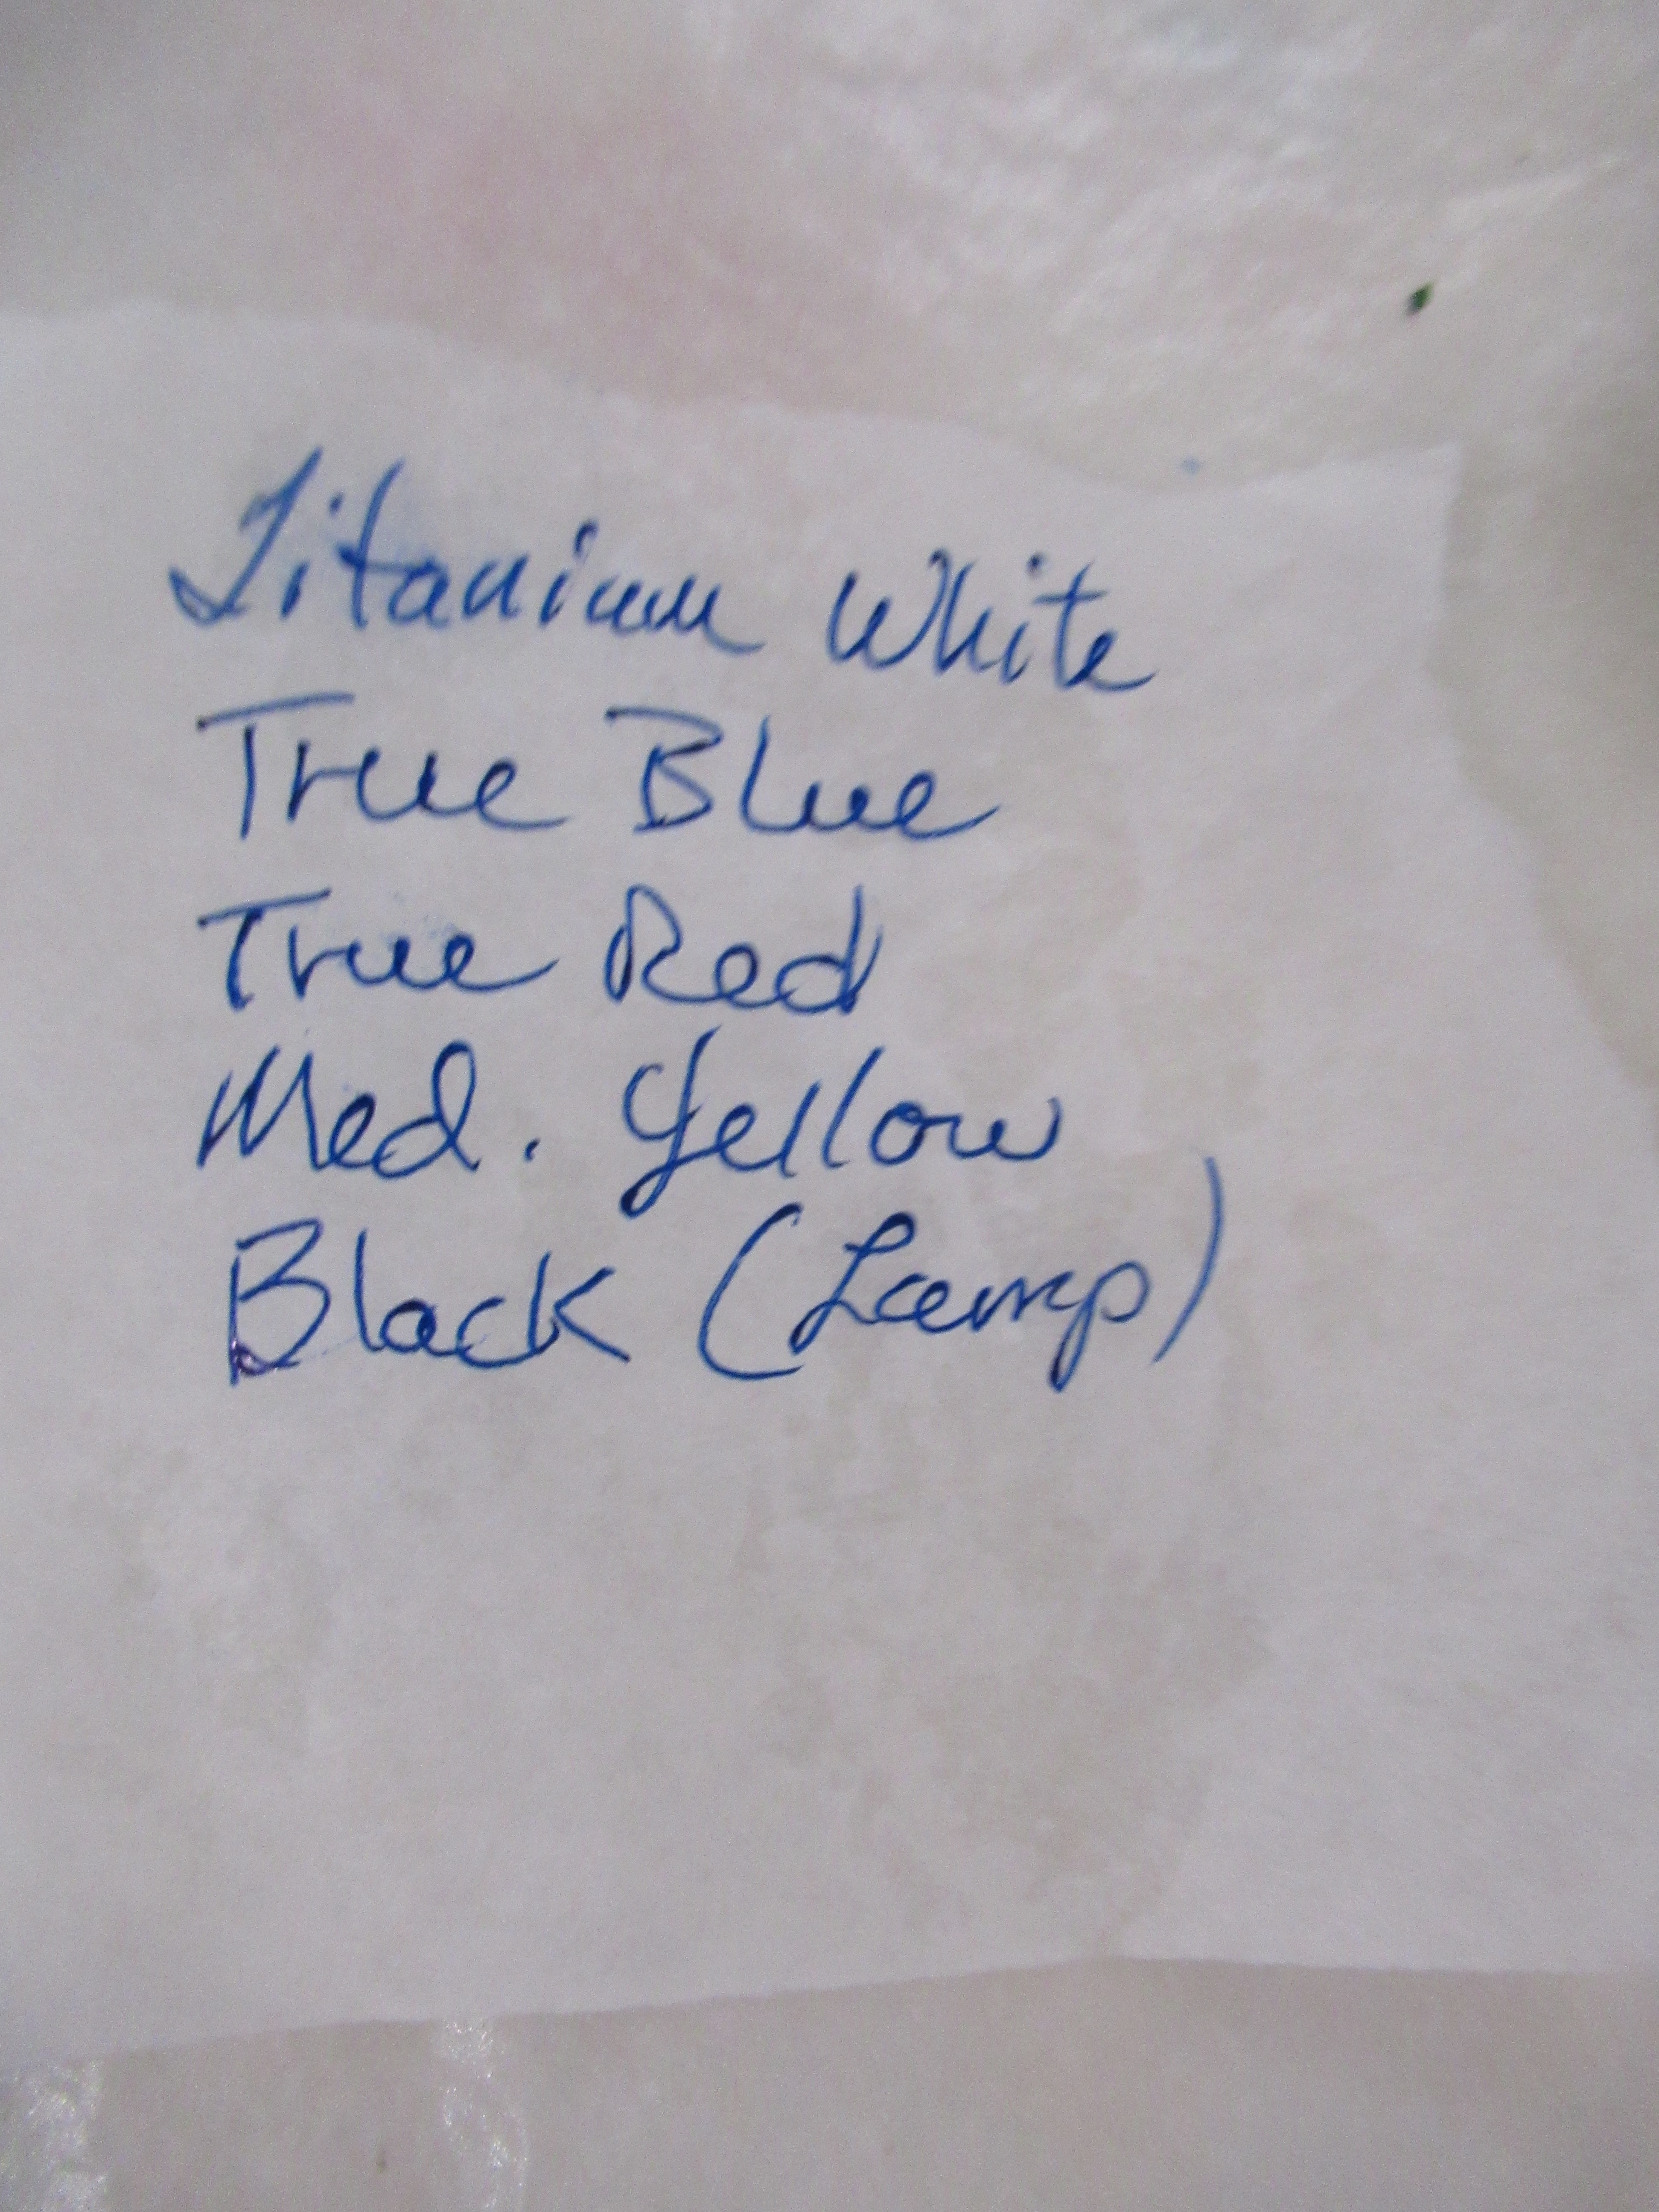 Titanium White
True Blue
True Red
Med. Yellow
Black (Lamp)